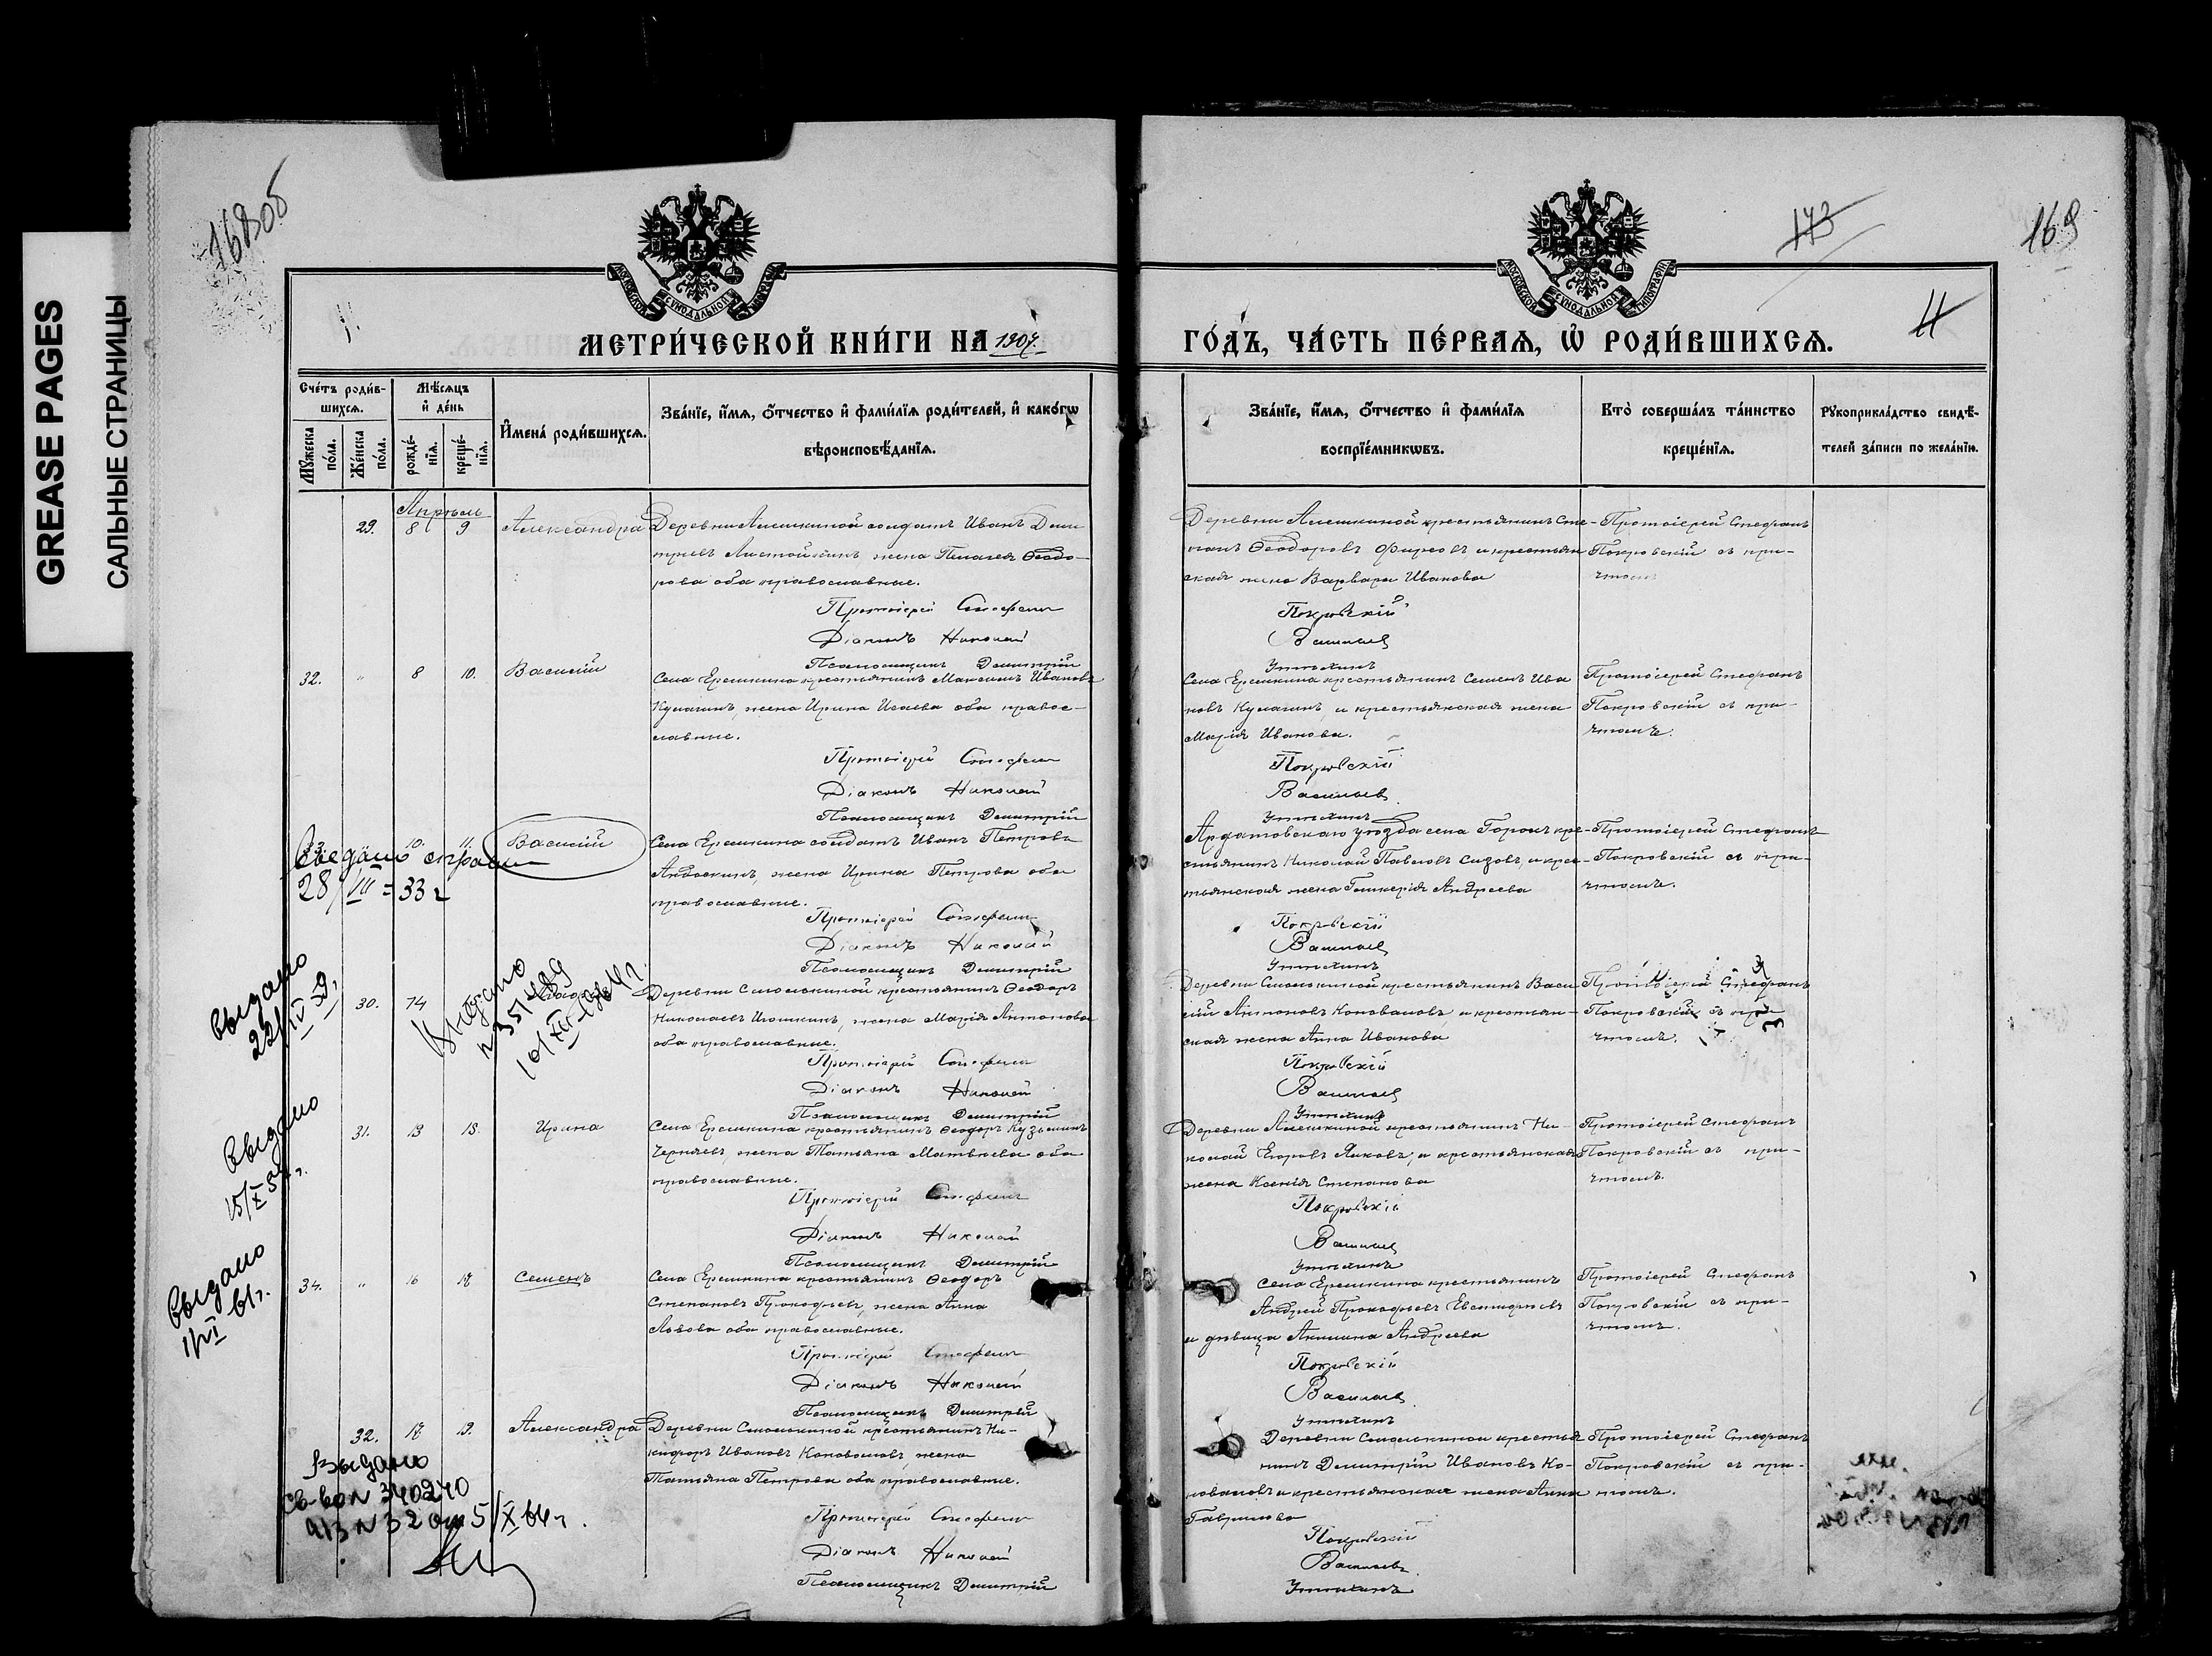 GREASE PAGES
САЛЬНЫЕ СТРАНИЦЫ
168об
173
169
11
МОСКОВСКОЙ СѴНОДАЛЬНОЙ ТИПОГРАФІИ
МОСКОВСКОЙ СѴНОДАЛЬНОЙ ТИПОГРАФІИ
МЕТРИ́ЧЕСКОЙ КНИ́ГИ НА 1907
ГО́ДЪ, ЧА́СТЬ ПЕ́РВАЯ, Ѡ РОДИ́ВШИХСЯ.
Сче́тъ роди́в-
шихся.
Мꙋ́жеска по́ла.
Же́нска по́ла.
Мѣ́сяцъ и҆ де́нь
рожде́-нїя.
креще́-нїя.
И҆мена́ роди́вшихся.
Зва́нїе, и҆́мя, ѻ҆́тчество и҆ фами́лїя роди́телей, и҆ како́гѡ
вѣроисповѣ́данїя.
Зва́нїе, и҆́мя, ѻ҆́тчество и҆ фами́лїя
воспрїе́мникѡвъ.
Кто̀ соверша́лъ та́инство
креще́нїя.
Рꙋкоприкла́дство свидѣ́-
телей за́писи по жела́нїю.
Апрѣль
29. 8 9 Александра
Деревни Алешкиной солдатъ Иванъ Дми
тріевъ Листойкинъ, жена Пелагея Ѳеодо-
рова оба православные.
Протоіерей Стефанъ
Діаконъ Николай
Псаломщикъ Димитрій
Деревни Алешкиной крестьянинъ Сте-
панъ Ѳеодоровъ Фирсовъ и крестьян
ская жена Варвара Иванова
Покровскій
Васильевъ
Утѣхинъ
Протоіерей Стефанъ
Покровскій съ при-
чтомъ
32. " 8 10. Василій
Села Еремкина крестьянинъ Максимъ Ивановъ
Кулагинъ, жена Ирина Исаева оба право-
славные.
Протоіерей Стефанъ
Діаконъ Николай
Псаломщикъ Димитрій
Села Еремкина крестьянинъ Семенъ Ива
новъ Кулагинъ, и крестьянская жена
Марія Иванова.
Покровскій
Васильевъ
Утѣхинъ
Протоіерей Стефанъ
Покровскій съ при-
чтомъ.
33. 10. 11. Василій
Сведано справ
28/III=33 г
Села Еремкина солдатъ Иванъ Петровъ
Авдоскинъ, жена Ирина Петрова оба
православные.
Протоіерей Стефанъ
Діаконъ Николай
Псаломщикъ Димитрій
Ардатовскаго уѣзда села Горокъ кре-
стьянинъ Николай Павловъ Сизовъ, и крес-
тьянская жена Гликерія Андреева
Покровскій
Васильевъ
Утѣхинъ
Протоіерей Стефанъ
Покровскій съ при-
чтомъ.
Выдано
22/IV 59.
30. 14
Выдано
Деревни Смолькиной крестьянинъ Ѳеодоръ
Николаевъ Илюшкинъ, жена Марія Антонова
оба православные.
Протоіерей Стефанъ
Діаконъ Николай
Псаломщикъ Димитрій
Деревни Смолькиной крестьянинъ Васи
лій Антоновъ Коноваловъ, и крестьян-
ская жена Анна Иванова
Покровскій
Васильевъ
Утѣхинъ
Протоіерей Стефанъ
Покровскій съ при
чтомъ.
Выдано
31. 13 15. Ирина
Села Еремкина крестьянинъ Ѳеодоръ Кузьминъ
Черняевъ, жена Татьяна Матвѣева оба
православные.
Протоіерей Стефанъ
Діаконъ Николай
Псаломщикъ Димитрій
Деревни Алешкиной крестьянинъ Ни-
колай Егоровъ Яковъ, и крестьянская
жена Ксенія Степанова
Покровскій
Васильевъ
Утѣхинъ
Протоіерей Стефанъ
Покровскій съ при-
чтомъ.
Выдано
34. " 16 17 Семенъ
Села Еремкина крестьянинъ Ѳеодоръ
Степановъ Прокофьевъ, жена Анна
Львова оба православные.
Протоіерей Стефанъ
Діаконъ Николай
Псаломщикъ Димитрій
Села Еремкина крестьянинъ
Андрей Прокофьевъ Евстифѣевъ
и дѣвица Акилина Андреева
Покровскій
Васильевъ
Утѣхинъ
Протоіерей Стефанъ
Покровскій съ при-
чтомъ.
32. 17 19. Александра
Выдано
Св-во N 340240
а/з N 32 от 5/X 64 г.
Деревни Смолькиной крестьянинъ Ни-
кифоръ Ивановъ Коноваловъ, жена
Татьяна Петрова оба православные.
Протоіерей Стефанъ
Діаконъ Николай
Псаломщикъ Димитрій
Деревни Смолькиной крестья
нинъ Димитрій Ивановъ Ко-
новаловъ и крестьянская жена Анна
Гаврилова
Покровскій
Васильевъ
Утѣхинъ
Протоіерей Стефанъ
Покровскій съ при-
чтомъ.